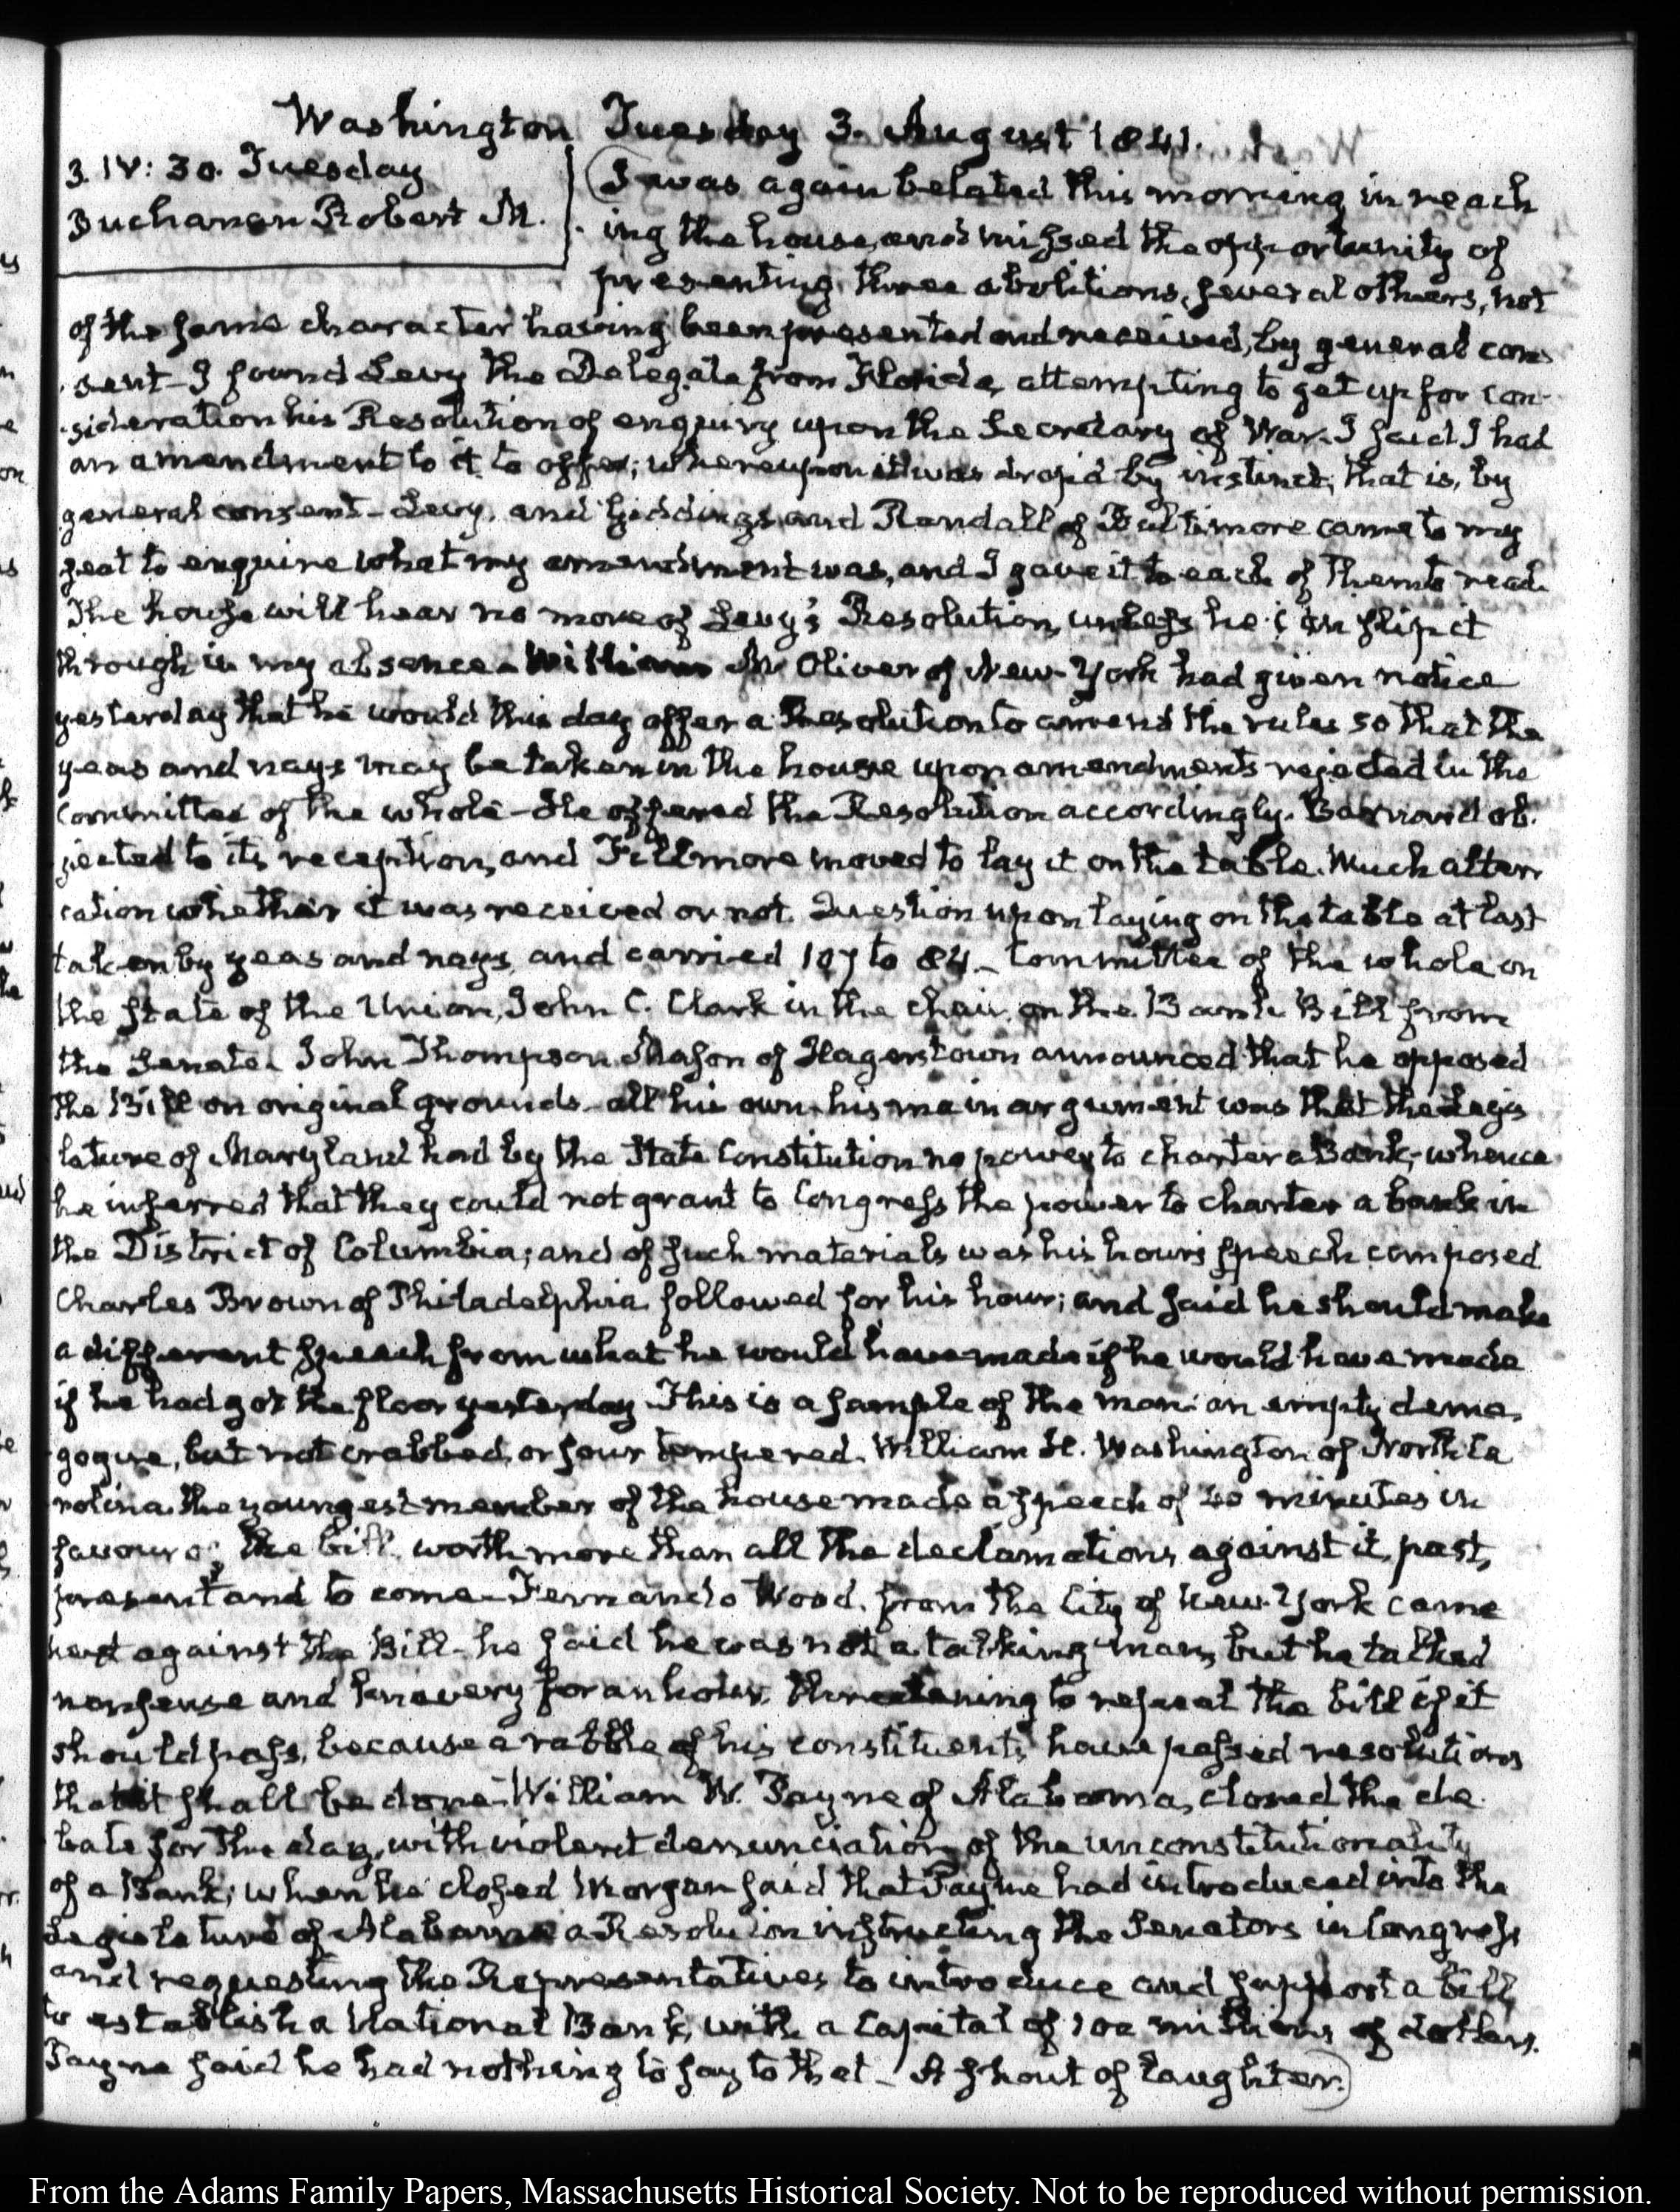 Washington Tuesday 3. August 1841.
3. IV: 30. Tuesday
Buchanan Robert M.
I was again belated this morning in reach
ing the house, and missed the opportunity of
presenting three abolitions, several others, not
of the same character having been presented and received, by general con
sent- I found Levy the Delegate from Florida attempting to get up for con-
sideration his Resolution of enquiry upon the Secretary of War. I said I had
an amendment to it to offer; whereupon it was drop'd by instinct, that is, by
general consent- Levy, and Giddings and Randall of Baltimore came to my
seat to enquire what my amendment was, and I gave it to each of them to read
The house will hear no more of Levy's Resolution, unless he can slip it
through in my absence- William M Oliver of New-York had given notice
yesterday that he would this day offer a Resolution to amend the rules so that the
yeas and nays may be taken in the house upon amendments rejected in the
committee of the whole- He offered the Resolution accordingly. Barnard ob-
jected to its reception, and Fillmore moved to lay it on the table. Much alter
cation whether it was received or not. Question upon laying on the table at last
taken by yeas and nays, and carried 107 to 84- Committee of the whole on
the state of the Union, John C. Clark in the chair, on the Bank Bill from
the Senate. John Thompson Mason of Hagerstown announced that he opposed
the Bill on original grounds- all his own- his main argument was that the Legis
lature of Maryland had by the State Constitution no power to charter a Bank; whence
he inferred that they could not grant to Congress the power to charter a bank in
the District of Columbia; and of such materials was his hour's speech composed
Charles Brown of Philadelphia followed for his hour; and said he should make
a different speech from what he would have made if he would have made
if he had got the floor yesterday- This is a sample of the man: an empty dema-
gogue, but not crabbed or sour tempered. William H. Washington of North Ca
rolina the youngest member of the house made a speech of 20 minutes in
favour of the bill, worth more than all the declamations against it, past,
present and to come- Fernando Wood, from the City of New-York came
next against the Bill- he said he was not a talking man, but he talked
nonsense and knavery for an hour, threatening to repeal the bill if it
should pass, because a rabble of his constituents have passed resolutions
that it shall be done- William W. Payne of Alabama, closed the de-
bate for the day, with violent denunciation of the unconstitutionality
of a Bank; when he closed Morgan said that Payne had introduced into the
Legislature of Alabama a Resolution instructing the Senators in Congress
and requesting the Representatives to introduce and support a bill
to establish a National Bank, with a Capital of 100 millions of dollars.
Payne said he had nothing to say to that- A shout of laughter.
From the Adams Family Papers, Massachusetts Historical Society. Not to be reproduced without permission.